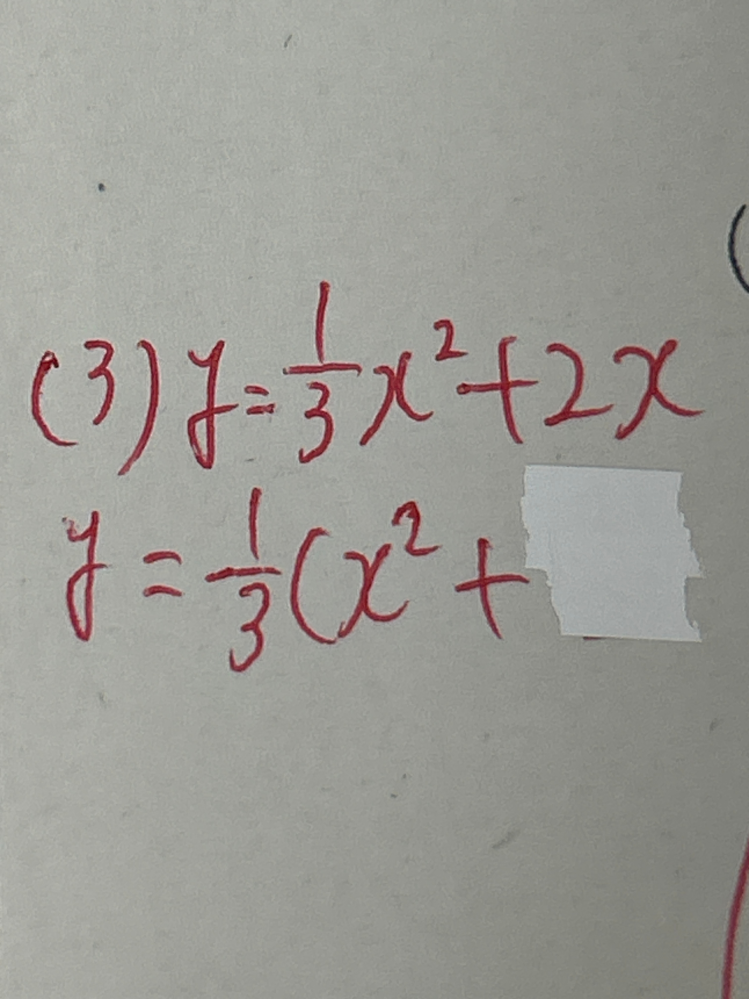 (3) y = 1/3 x² + 2x
y = 1/3 (x² +